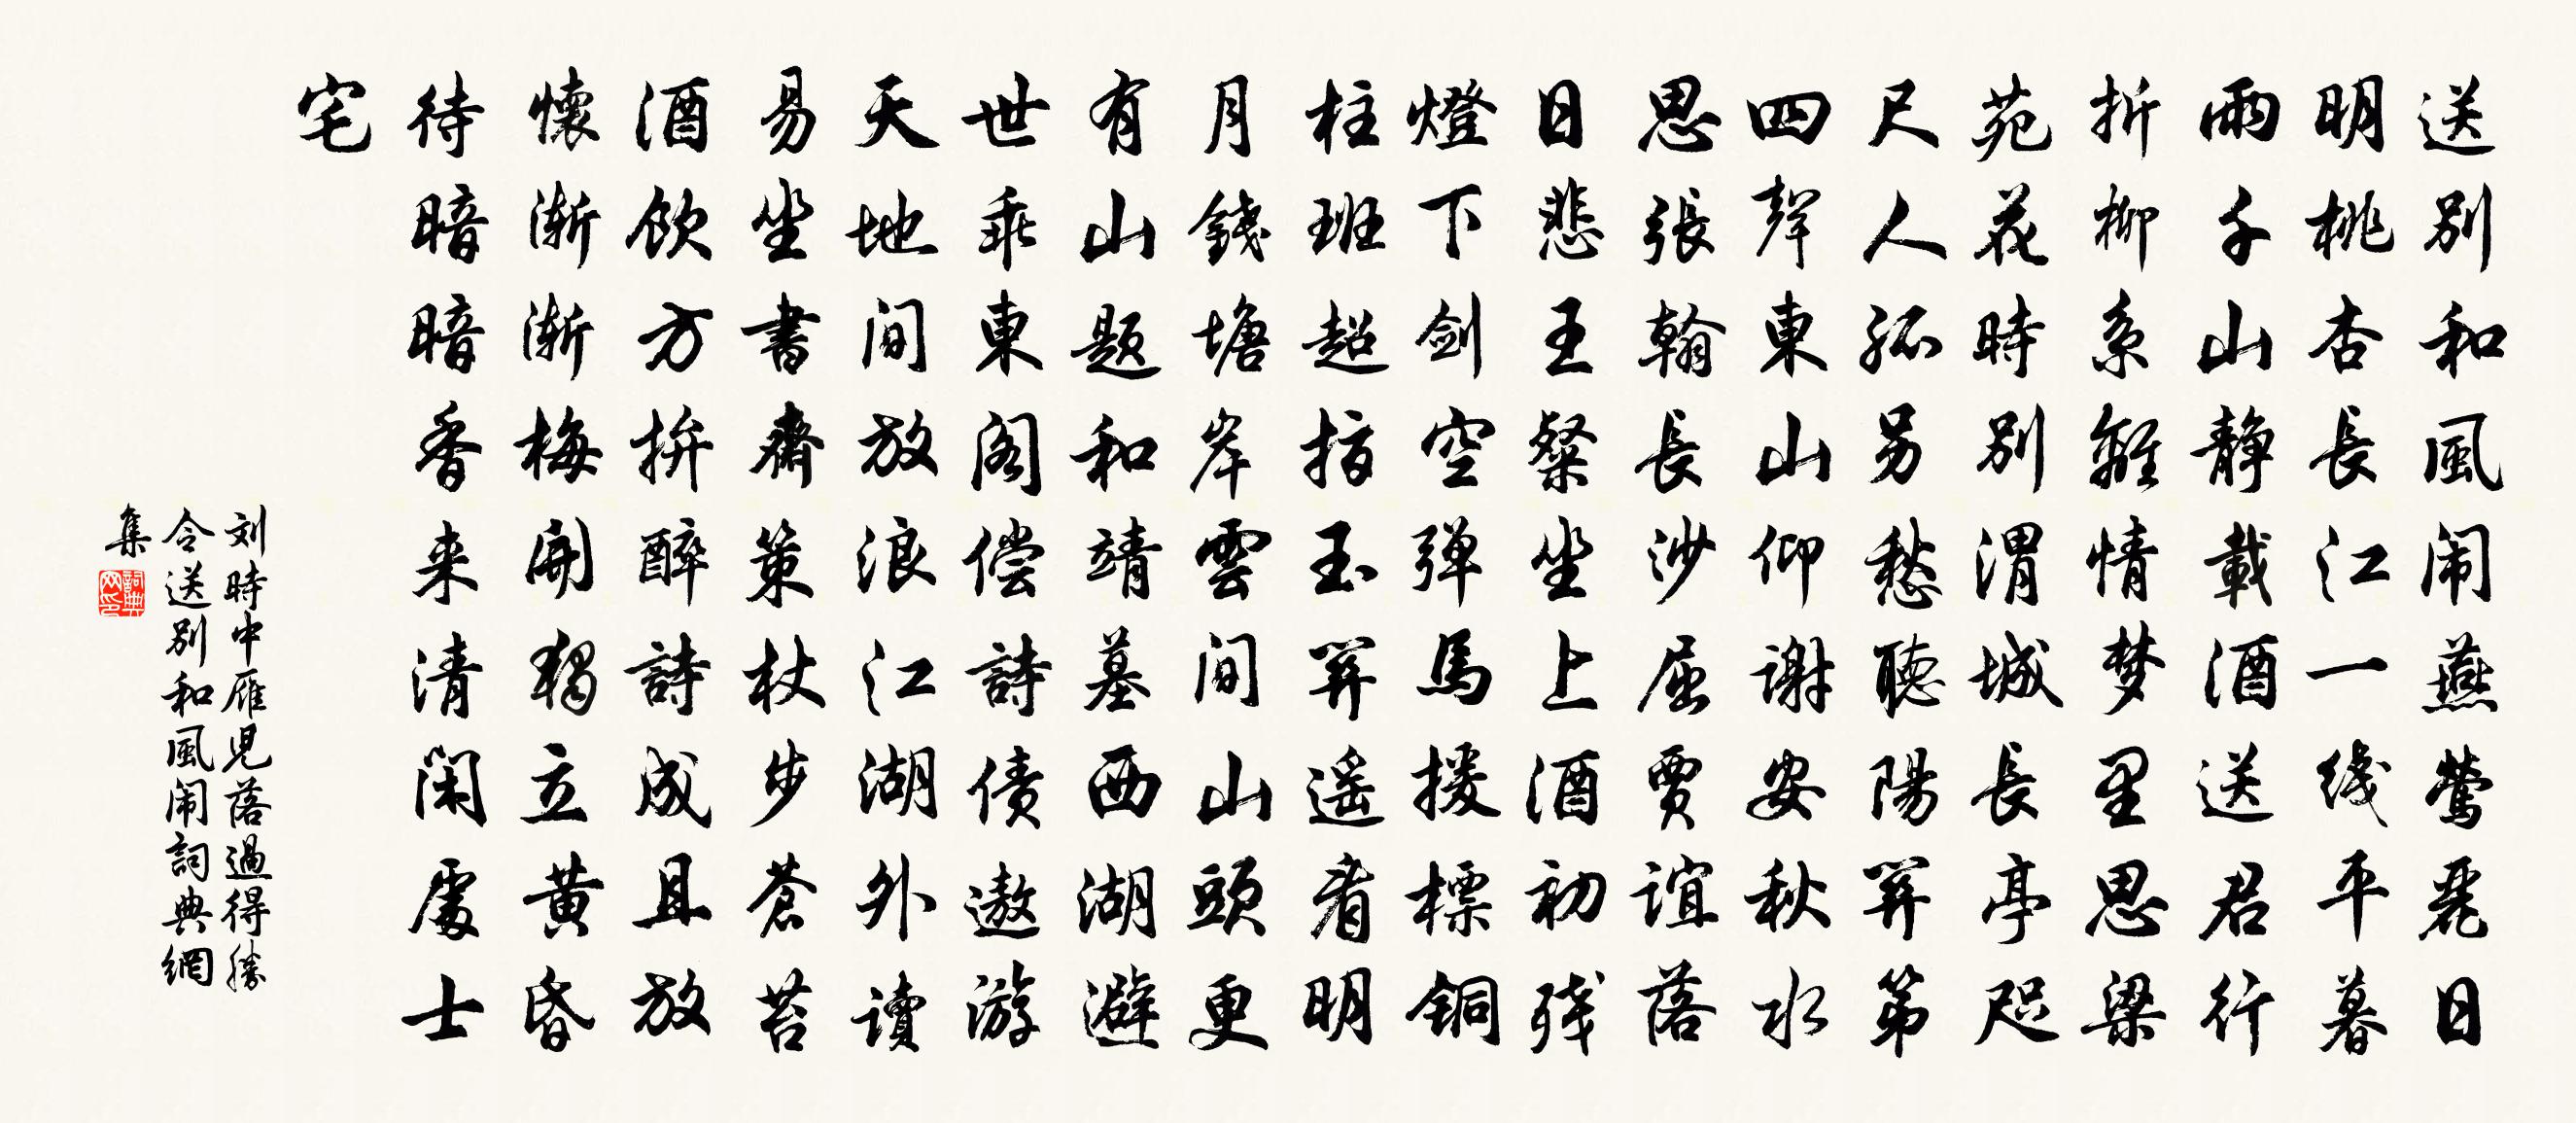 送别和風闹燕莺麗日
明桃杏長江一线平暮
雨千山静載酒送君行
折柳系離情梦里思梁
苑花時别渭城長亭咫
尺人孤另愁聽陽關第
四聲東山仰谢安秋水
思張翰長沙屈賈谊落
日悲王粲坐上酒初残
燈下剑空弹馬援標铜
柱班超指玉關遥看明
月錢塘岸雲间山頭更
有山題和靖墓西湖避
世乖東阁偿詩债遨游
天地间放浪江湖外讀
易坐書齋策杖步蒼苔
酒飲方拚醉詩成且放
懷渐渐梅開獨立黄昏
待暗暗香来清閑處士
宅
刘時中雁児落過得勝
令送别和風闹詞典網
集
詞典網印